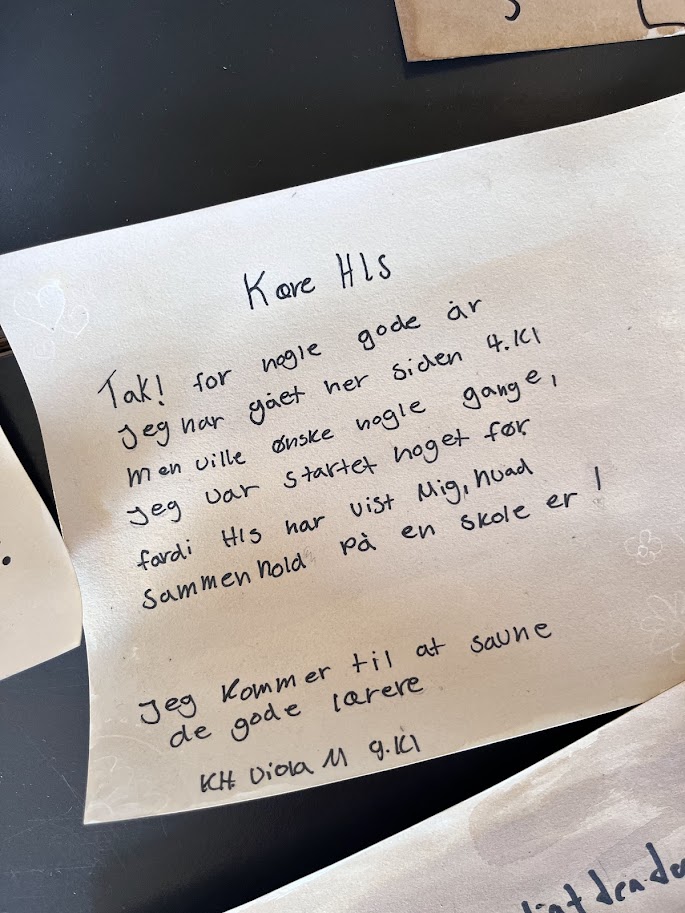 Kære Hls
Tak! for nogle gode år
Jeg har gået her siden 4.Kl
men ville ønske nogle gange,
jeg var startet noget før
fordi Hls har vist Mig, hvad
sammenhold på en skole er!
Jeg kommer til at savne
de gode lærere
KH. Viola M 9.Kl